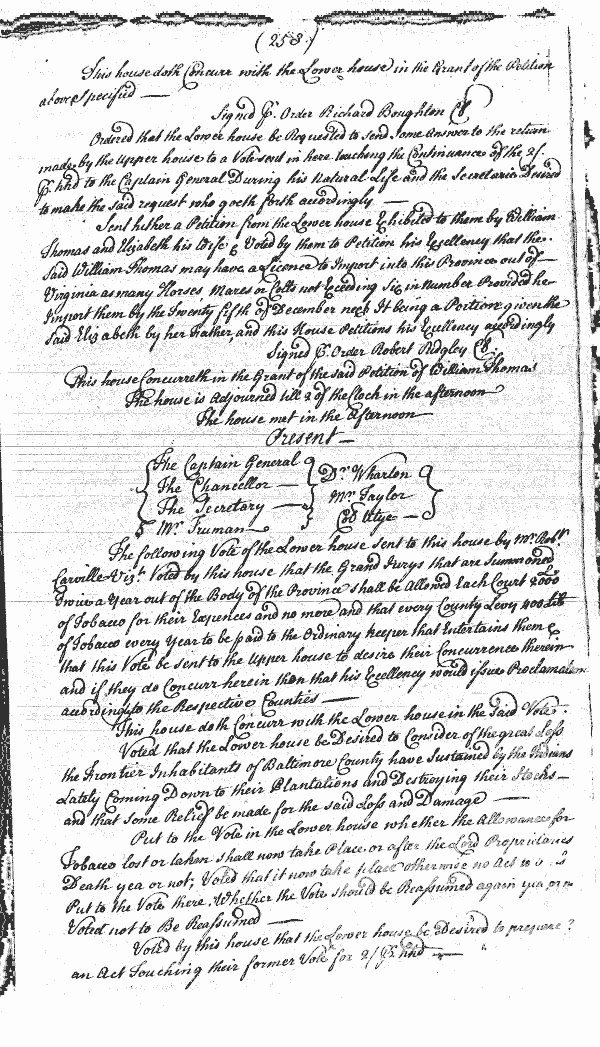 (258.)
This house doth Concurr with the Lower house in the Grant of the Petition
above Specified —
Signed P. Order Richard Boughton Cl
Ordered that the Lower house be Requested to send some answer to the return
made by the Upper house to a Vote sent in here touching the Continuance of the 2/.
P. hhd to the Captain General During his Natural Life and the Secretarie Desired
to make the said request who goeth forth accordingly —
Sent hither a Petition from the Lower house Exhibited to them by William
Thomas and Elizabeth his Wife & Voted by them to Petition his Excellency that the
Said William Thomas may have a Licence to Import into this Province out of
Virginia as many Horses, Mares or Colts not Exceding Six in Number Provided he
Import them by the Twenty fifth of December next It being a Portion given the
Said Elizabeth by her Father, and this House Petitions his Excellency accordingly
Signed P. Order Robert Ridgley Cl.
This house Concurreth in the Grant of the said Petition of William Thomas
The house is Adjourned till 2 of the Clock in the afternoon
The house met in the Afternoon
Present —
The Captain General
The Chancellor —
The Secretary —
Mr. Truman —
Dr. Wharton
Mr. Taylor
Col Utye —
The following Vote of the Lower house sent to this house by Mr. Robt.
Carville Vizt. Voted by this house that the Grand Jurys that are Summoned
twice a Year out of the Body of the Province shall be Allowed Each Court 2000 Lb
of Tobacco for their Expences and no more and that every County Levy 400 Lib
of Tobacco every Year to be paid to the Ordinary keeper that Entertains them &
that this Vote be sent to the Upper house to desire their Concurrence therein
and if they do Concurr herein then that his Excellency would issue Proclamation
according to the Respective Counties —
This house doth Concurr with the Lower house in the Said Vote.
Voted that the Lower house be Desired to Consider of the great Loss
the Frontier Inhabitants of Baltimore County have Sustained by the Indians
Lately Coming Down to their Plantations and Destroying their Stocks —
and that some Relief be made for the said Loss and Damage —
Put to the Vote in the Lower house whether the Allowance for
Tobacco lost or taken shall now take Place or after the Lord Proprietaries
Death yea or not; Voted that it now take place otherwise no Act
Put to the Vote there, Whether the Vote should be Reassumed again yea or no
Voted not to Be Reassumed —
Voted by this house that the Lower house be Desired to prepare
an Act Touching their former Vote for 2/ P. hhd —